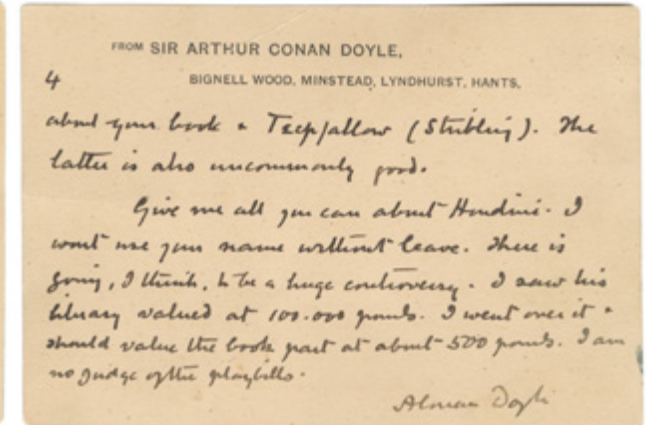 FROM SIR ARTHUR CONAN DOYLE,
BIGNELL WOOD, MINSTEAD, LYNDHURST, HANTS.
4
about your book & (Stribling). The
latter is also uncommonly good.
Give me all you can about Houdini. I
wont use your name without leave. There is
going, I think, to be a huge controversy. I saw his
library valued at 100.000 pounds. I went over it &
should value the book part at about 500 pounds. I am
no judge of the playbills.
A Conan Doyle